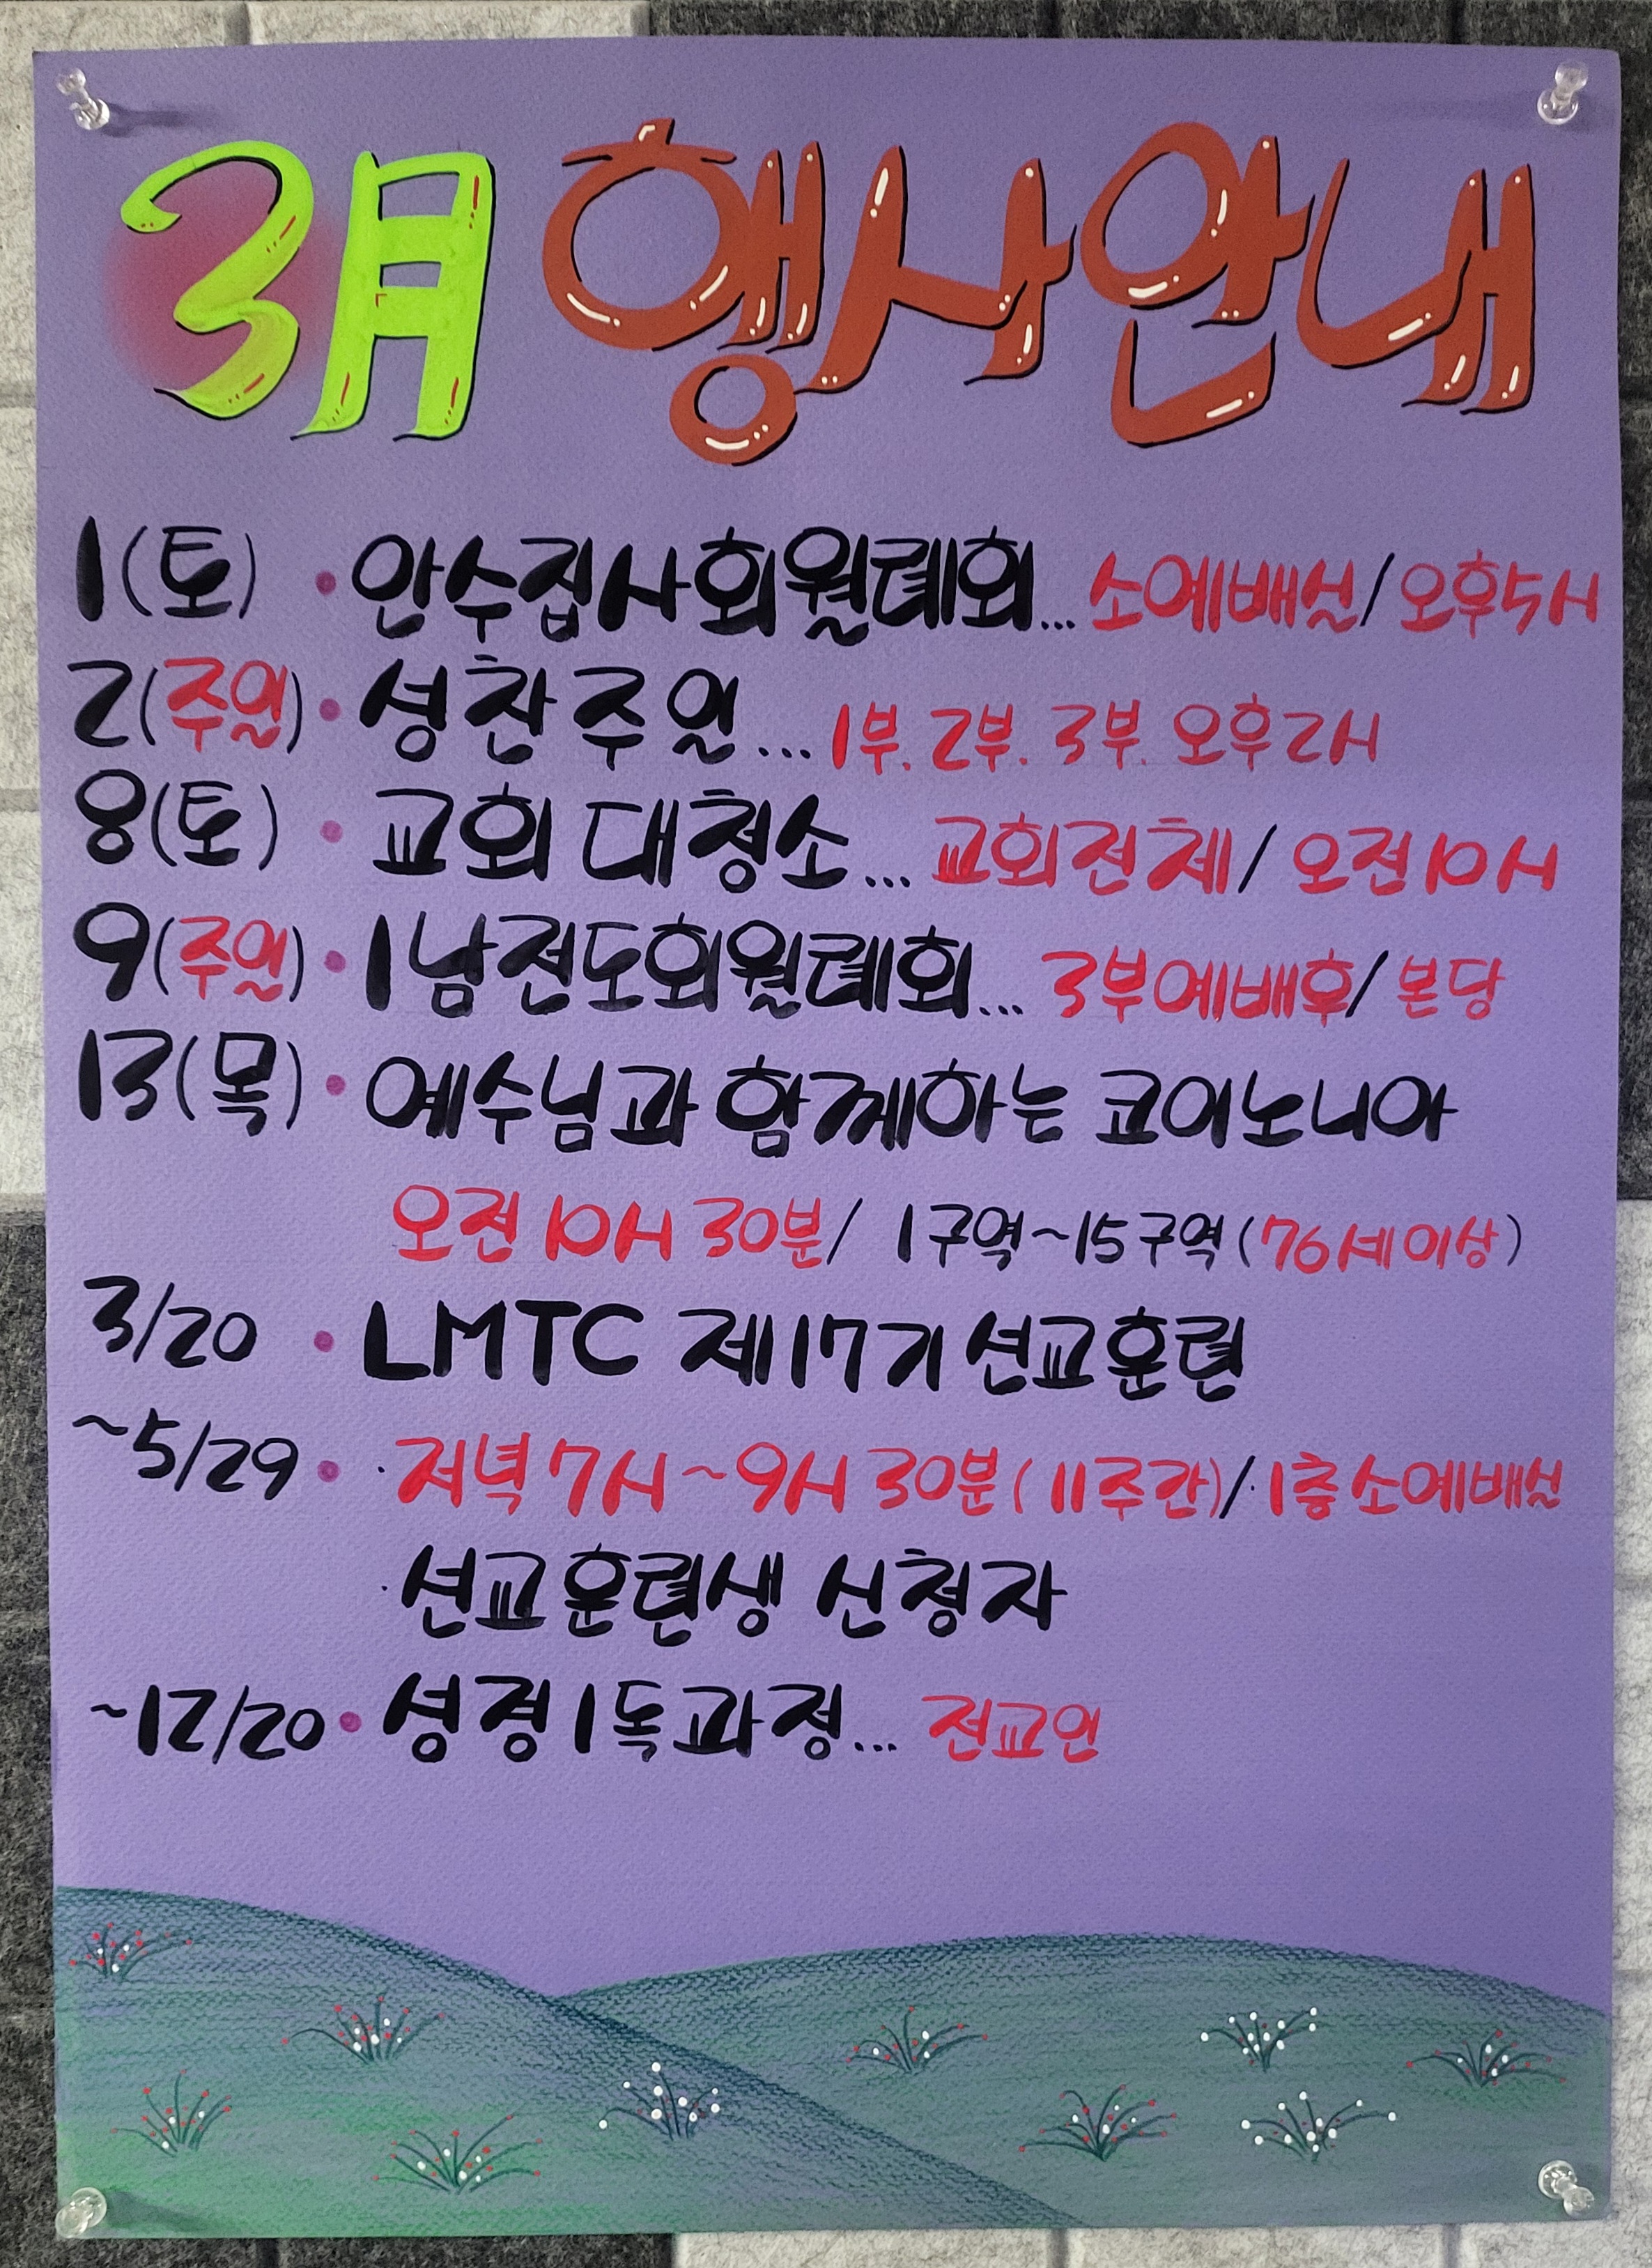 3月 행사안내
1(토) • 안수집사회월례회... 소예배실/오후5시
2(주일) • 성찬주일... 1부. 2부. 3부. 오후2시
8(토) • 교회 대청소... 교회전체/오전10시
9(주일) • 1남전도회월례회... 3부예배후/본당
13(목) • 예수님과 함께하는 코이노니아
오전10시30분/ 1구역~15구역(76세이상)
3/20 • LMTC 제17기 선교훈련
~5/29 • 저녁7시~9시30분(11주간)/1층소예배실
선교훈련생 신청자
~12/20 • 성경1독과정... 전교인